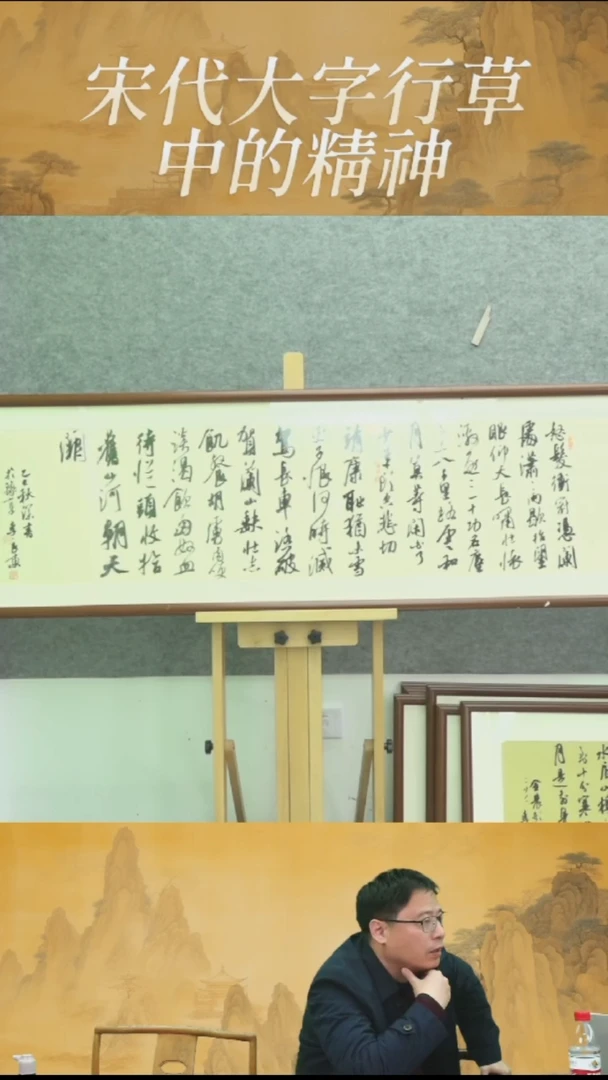 宋代大字行草
中的精神
怒髮衝冠憑闌
處瀟瀟雨歇抬望
眼仰天長嘯壯懷
激烈三十功名塵
土八千里路雲和
月莫等閒白了
少年頭空悲切
靖康恥猶未雪
臣子恨何時滅
駕長車踏破
賀蘭山缺壯志
飢餐胡虜肉笑
談渴飲匈奴血
待從頭收拾
舊山河朝天
闕
乙巳秋深書